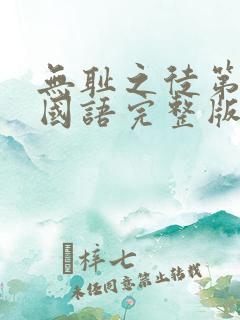 無耻之徒第
國語完整版
梓七
未经同意禁止转载